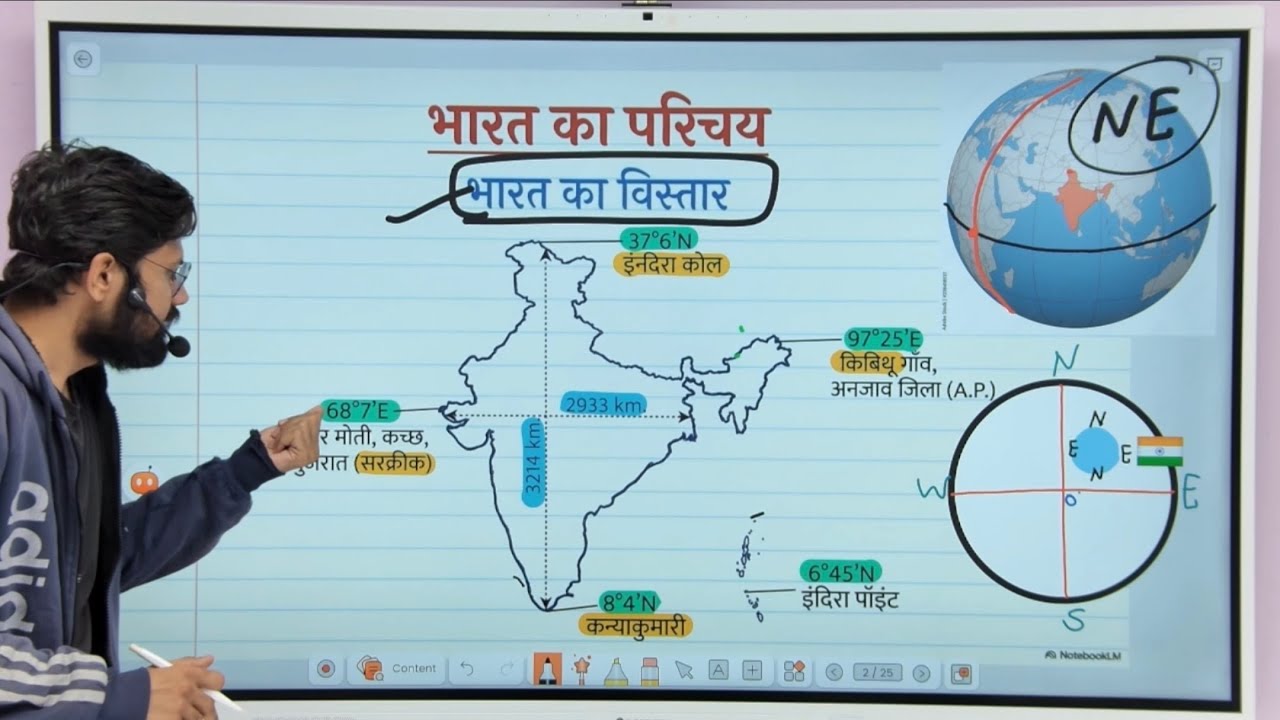 भारत का परिचय
भारत का विस्तार
NE
37°6'N
इंनदिरा कोल
97°25'E
किबिथू गाँव,
अनजाव जिला (A.P.)
68°7'E
मोती, कच्छ,
(सरक्रीक)
2933 km.
3214 km
8°4'N
कन्याकुमारी
6°45'N
इंदिरा पॉइंट
N
N
E E
N
W O E
S
NotebookLM
Content
A
2 / 25
adid